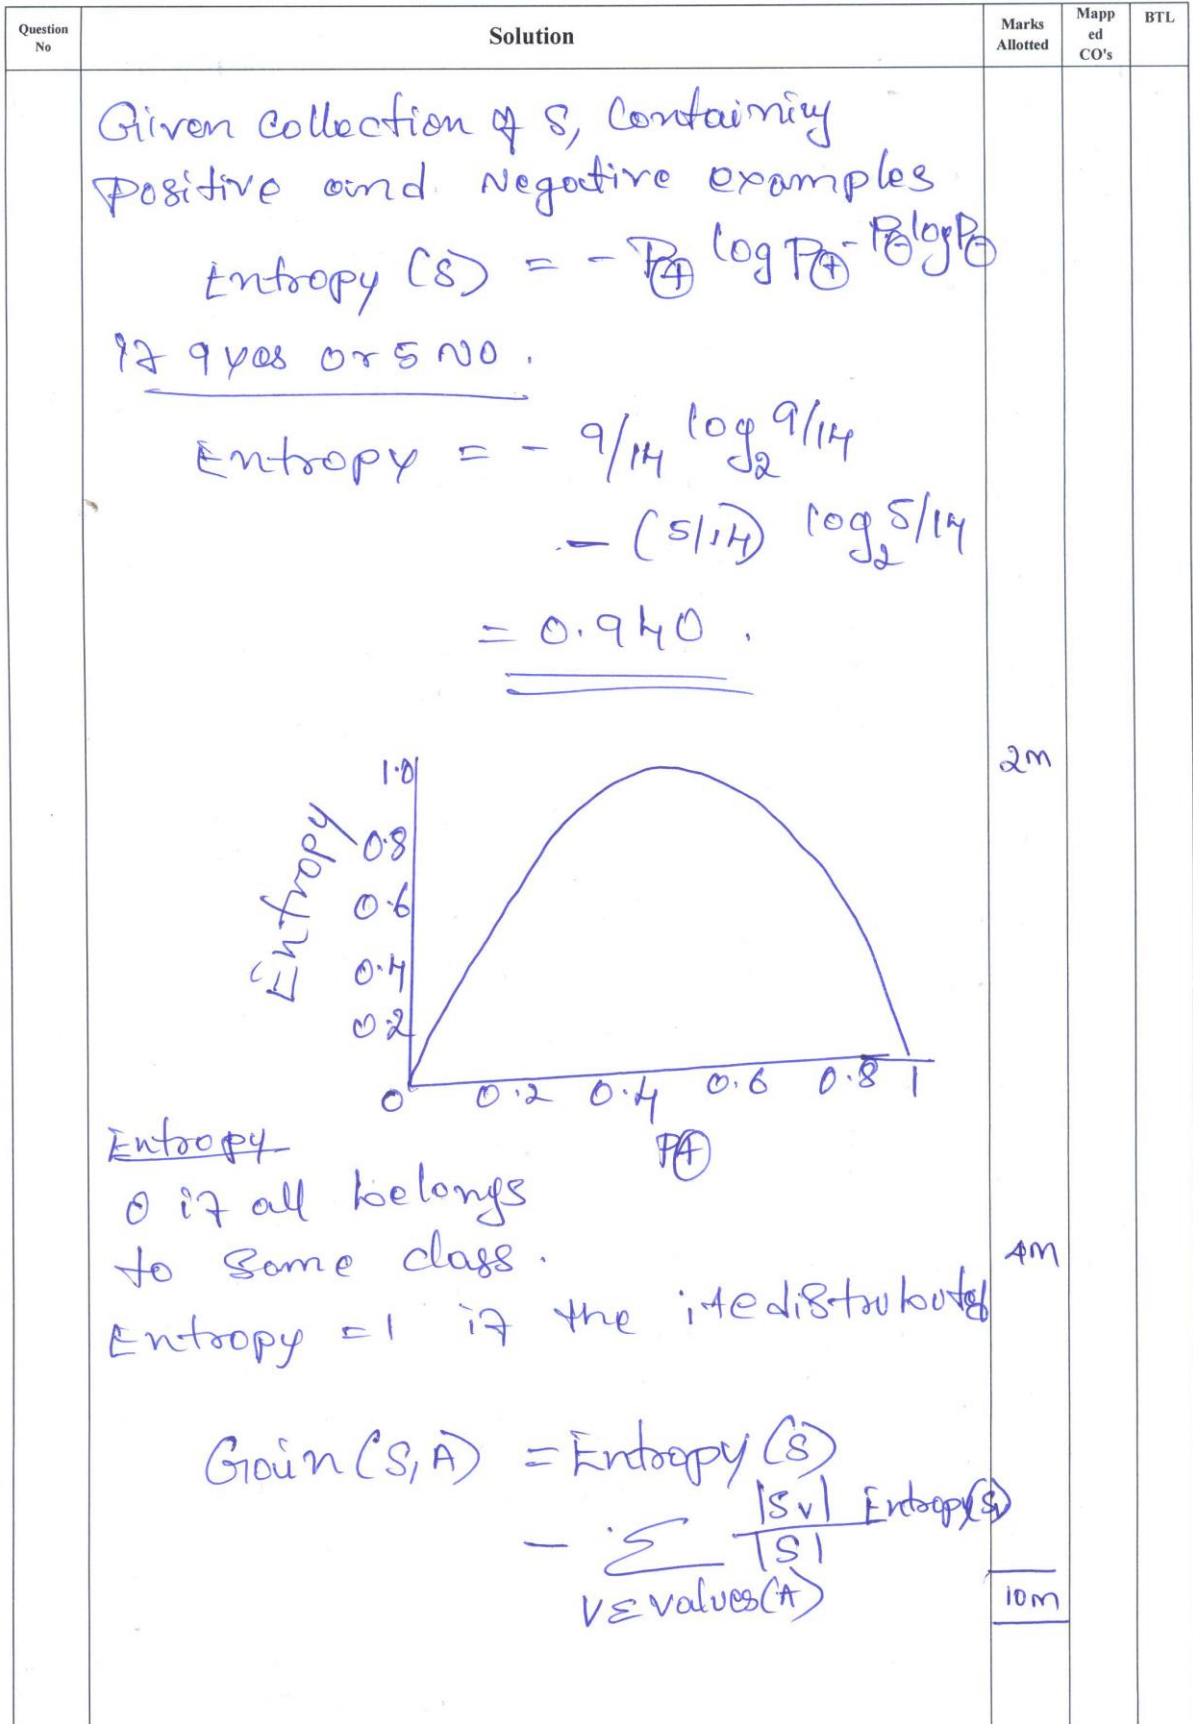 Question No
Solution
Marks Allotted
Mapp ed CO's
BTL
Given collection of S, Containing
Positive and Negative examples
Entropy (S) = - P⊕ log P⊕ - P⊖ log P⊖
If 9 yes or 5 NO.
Entropy = - 9/14 log₂ 9/14
- (5/14) log₂ 5/14
= 0.940.
2m
1.0
0.8
0.6
0.4
0.2
Entropy
0 0.2 0.4 0.6 0.8 1
P⊕
Entropy
0 if all belongs
to same class.
4m
Entropy = 1 if the distributed
Gain (S, A) = Entropy (S)
- Σ |Sv| / |S| Entropy(Sv)
v ε values (A)
10m